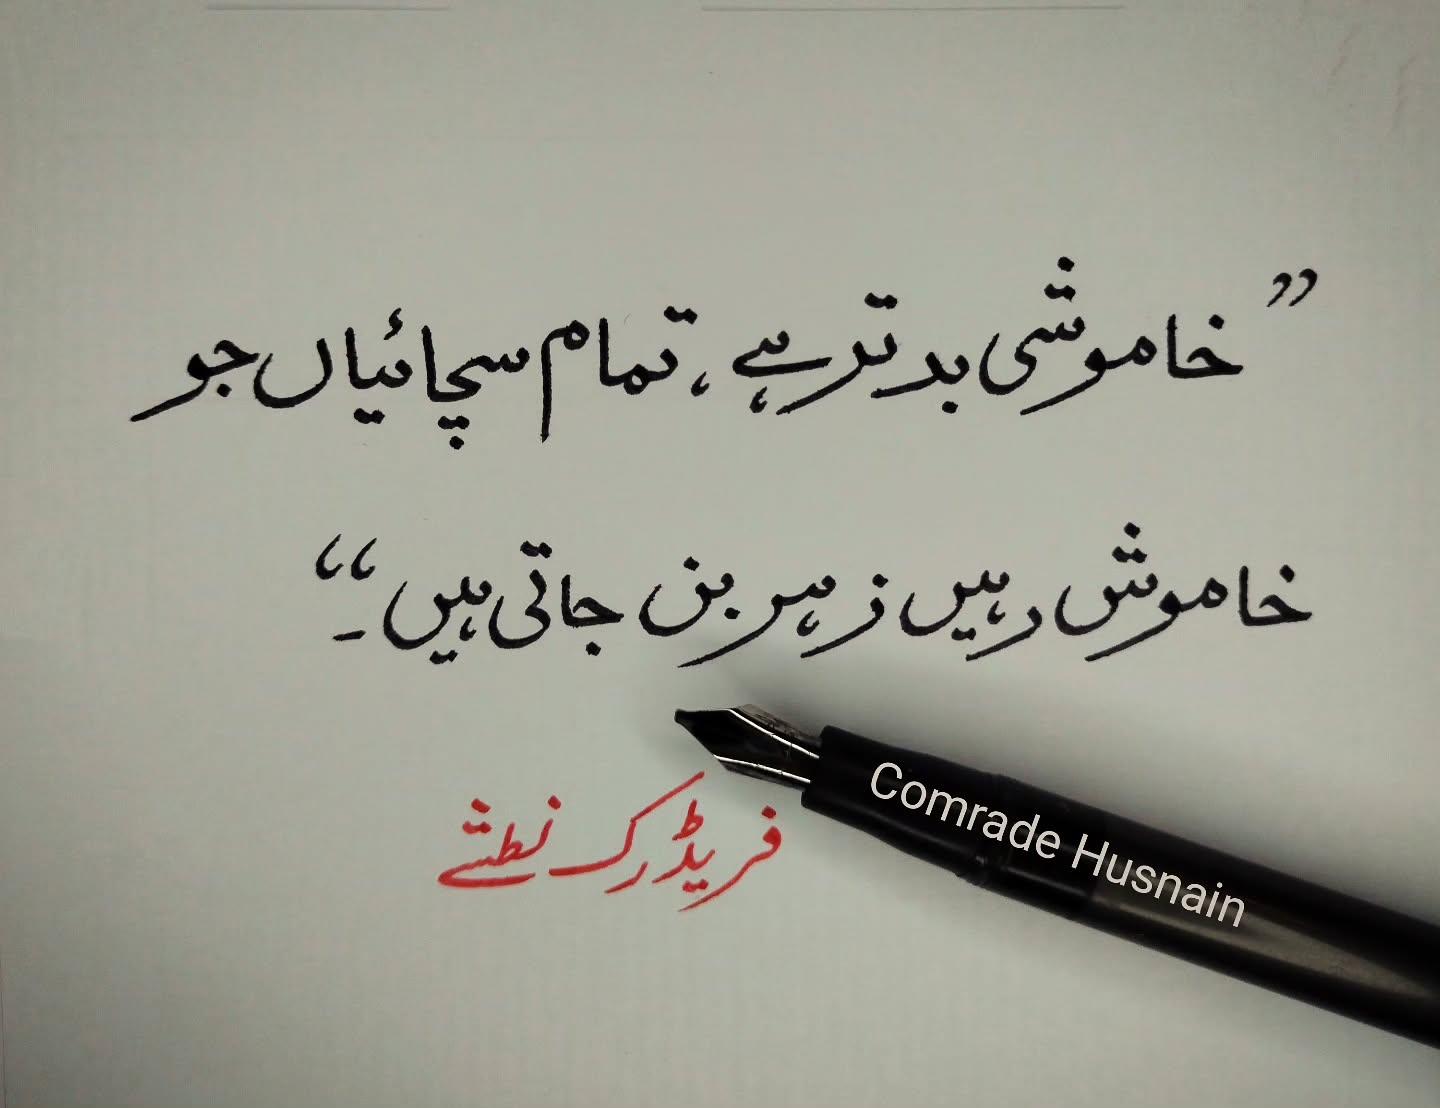 ”خاموشی بدتر ہے، تمام سچائیاں جو
خاموش رہیں زہر بن جاتی ہیں۔“
فریڈرک نطشے
Comrade Husnain